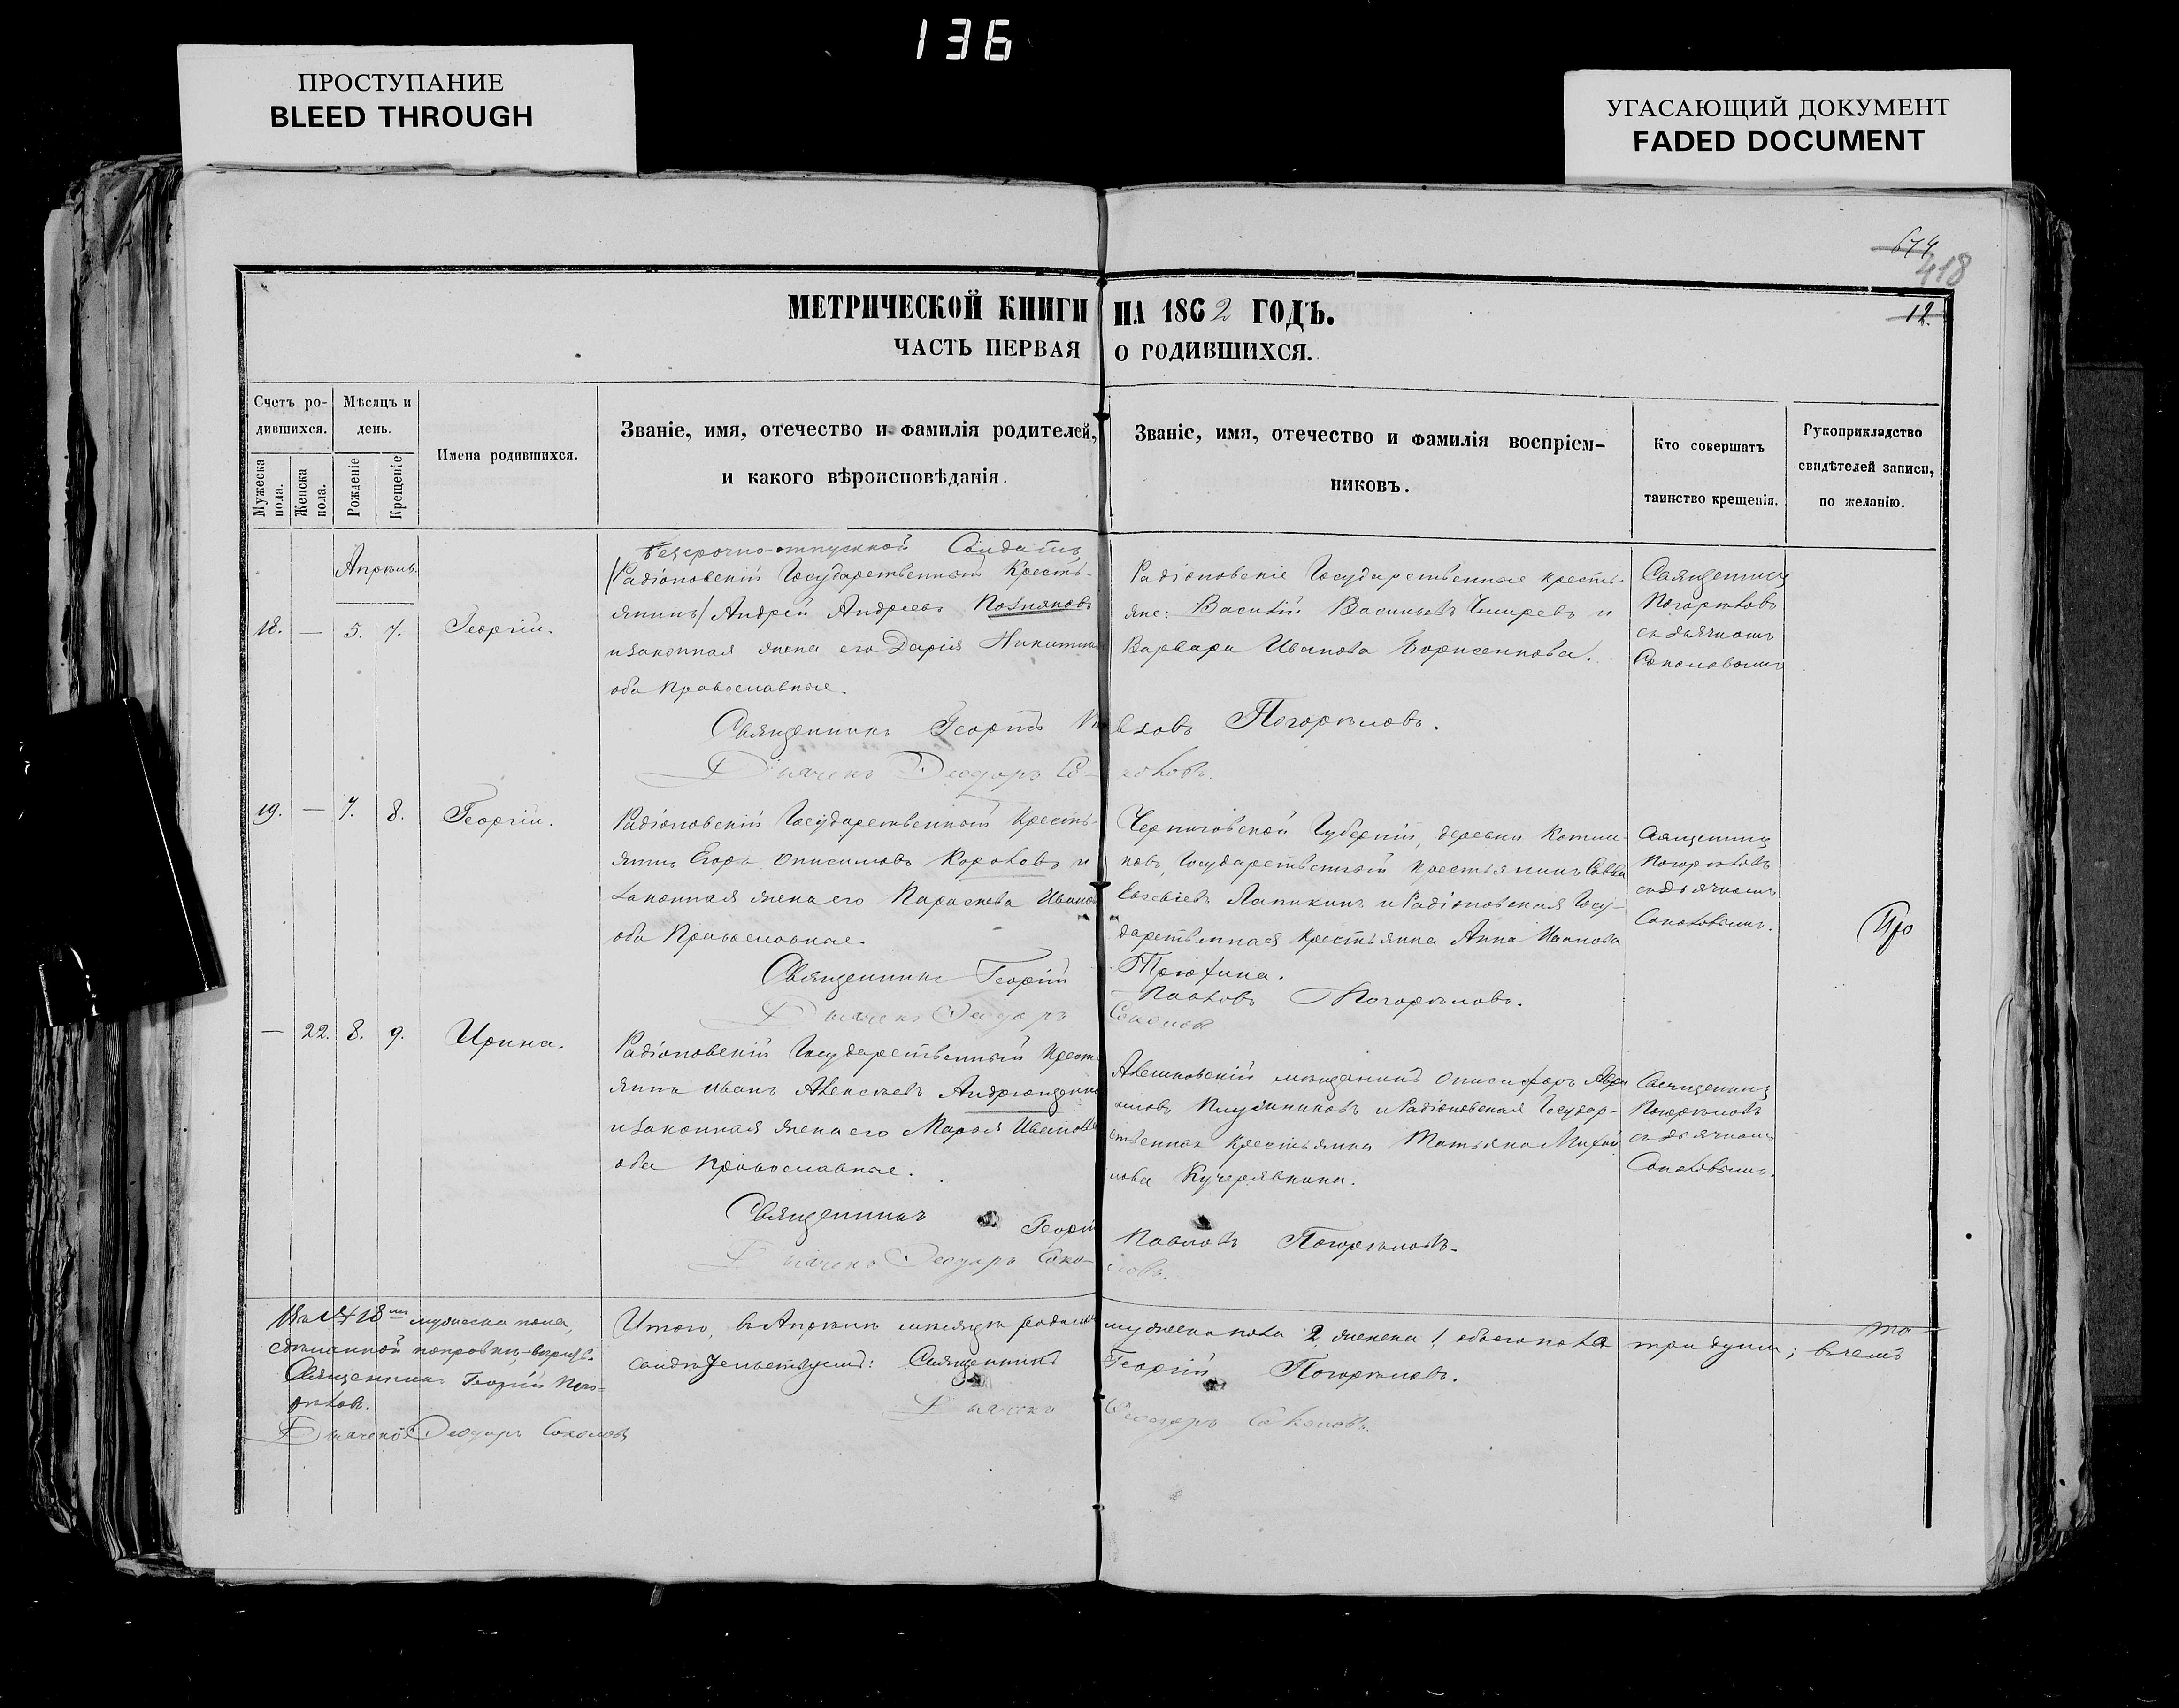 136
ПРОСТУПАНИЕ
BLEED THROUGH
УГАСАЮЩИЙ ДОКУМЕНТ
FADED DOCUMENT
674
418
12.
МЕТРИЧЕСКОЙ КНИГИ НА 1862 ГОДЪ.
ЧАСТЬ ПЕРВАЯ О РОДИВШИХСЯ.
Счетъ ро-
дившихся.
Мужеска пола.
Женска пола.
Мѣсяцъ и
день.
Рожденіе
Крещеніе
Имена родившихся.
Званіе, имя, отечество и фамилія родителей,
и какого вѣроисповѣданія.
Званіе, имя, отечество и фамилія воспріем-
никовъ.
Кто совершатъ
таинство крещенія.
Рукоприкладство
свидѣтелей записи,
по желанію.
Апрѣль.
18. — 5. 7. Георгій.
Безсрочно-отпускной Солдатъ
(Радіоновскій Государственный Кресть-
янинъ) Андрей Андреевъ Позняковъ
и законная жена его Дарія Никитина
оба Православные.
Радіоновскіе Государственные кресть-
яне: Василій Васильевъ и
Варвара Иванова Борисенкова.
Священникъ
Погорѣловъ
съ дьячкомъ
Соколовымъ
Священникъ Георгій Павловъ Погорѣловъ.
Дьячекъ Ѳеодоръ Соколовъ.
19. — 7. 8. Георгій.
Радіоновскій Государственный Кресть-
янинъ Егоръ Онисимовъ Королевъ и
законная жена его Параскева Иванова
оба Православные.
Черниговской Губерніи, деревни
Государственный крестьянинъ Савва
Евсевіевъ Лапикинъ и Радіоновская Госу-
дарственная крестьянка Анна Иванова
Трюхина.
Священникъ
Погорѣловъ
съ дьячкомъ
Соколовымъ.
Про
Священникъ Георгій Павловъ Погорѣловъ.
Дьячекъ Ѳеодоръ Соколовъ
— 22. 8. 9. Ирина.
Радіоновскій Государственный Кресть-
янинъ Иванъ Алексѣевъ Андрющенко
и законная жена его Марья Иванова
оба Православные.
Алешковскій мѣщанинъ Онисифоръ
и Радіоновская Государ-
ственная Крестьянка Татьяна Михай-
лова Кучерявкина.
Священникъ
Погорѣловъ
съ дьячкомъ
Соколовымъ.
Священникъ Георгій Павловъ Погорѣловъ.
Дьячекъ Ѳеодоръ Соколовъ.
18 мужеска пола,
сдѣланной поправки,
Священникъ Георгій Пого-
рѣловъ.
Дьячекъ Ѳеодоръ Соколовъ
Итого, въ Апрѣлѣ мѣсяцѣ родилось мужеска пола 2, женска 1, обоего пола три души; въ чемъ
свидѣтельствуемъ: Священникъ Георгій Погорѣловъ.
Дьячекъ Ѳеодоръ Соколовъ.